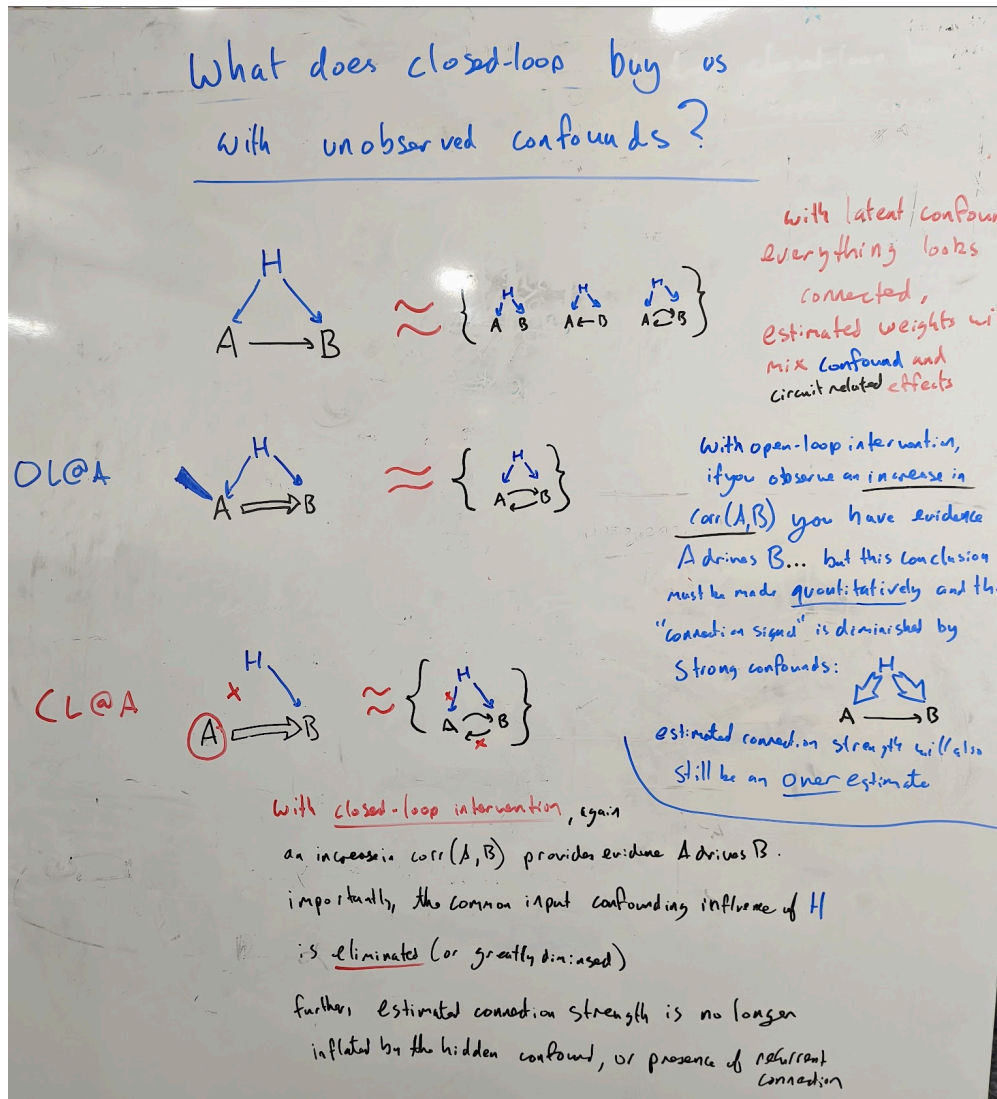 What does closed-loop buy us
with unobserved confounds?
H
A B
≈
{ H H H }
A B A B A B
with latent confoun
everything looks
connected,
estimated weights wi
mix confound and
circuit related effects
OL@A
H
A B
≈
{ H }
A B
with open-loop intervention,
if you observe an increase in
corr(A,B) you have evidence
A drives B... but this conclusion
must be made quantitatively and th
"connection signal" is diminished by
strong confounds:
H
A B
estimated connection strength will also
still be an over estimate
CL@A
H
x
A B
≈
{ H }
x
A B
x
with closed-loop intervention, again
an increase in corr(A,B) provides evidene A drives B.
importantly, the common input confounding influence of H
is eliminated (or greatly diminised)
further, estimated connection strength is no longer
inflated by the hidden confound, or presence of recurrent
connection